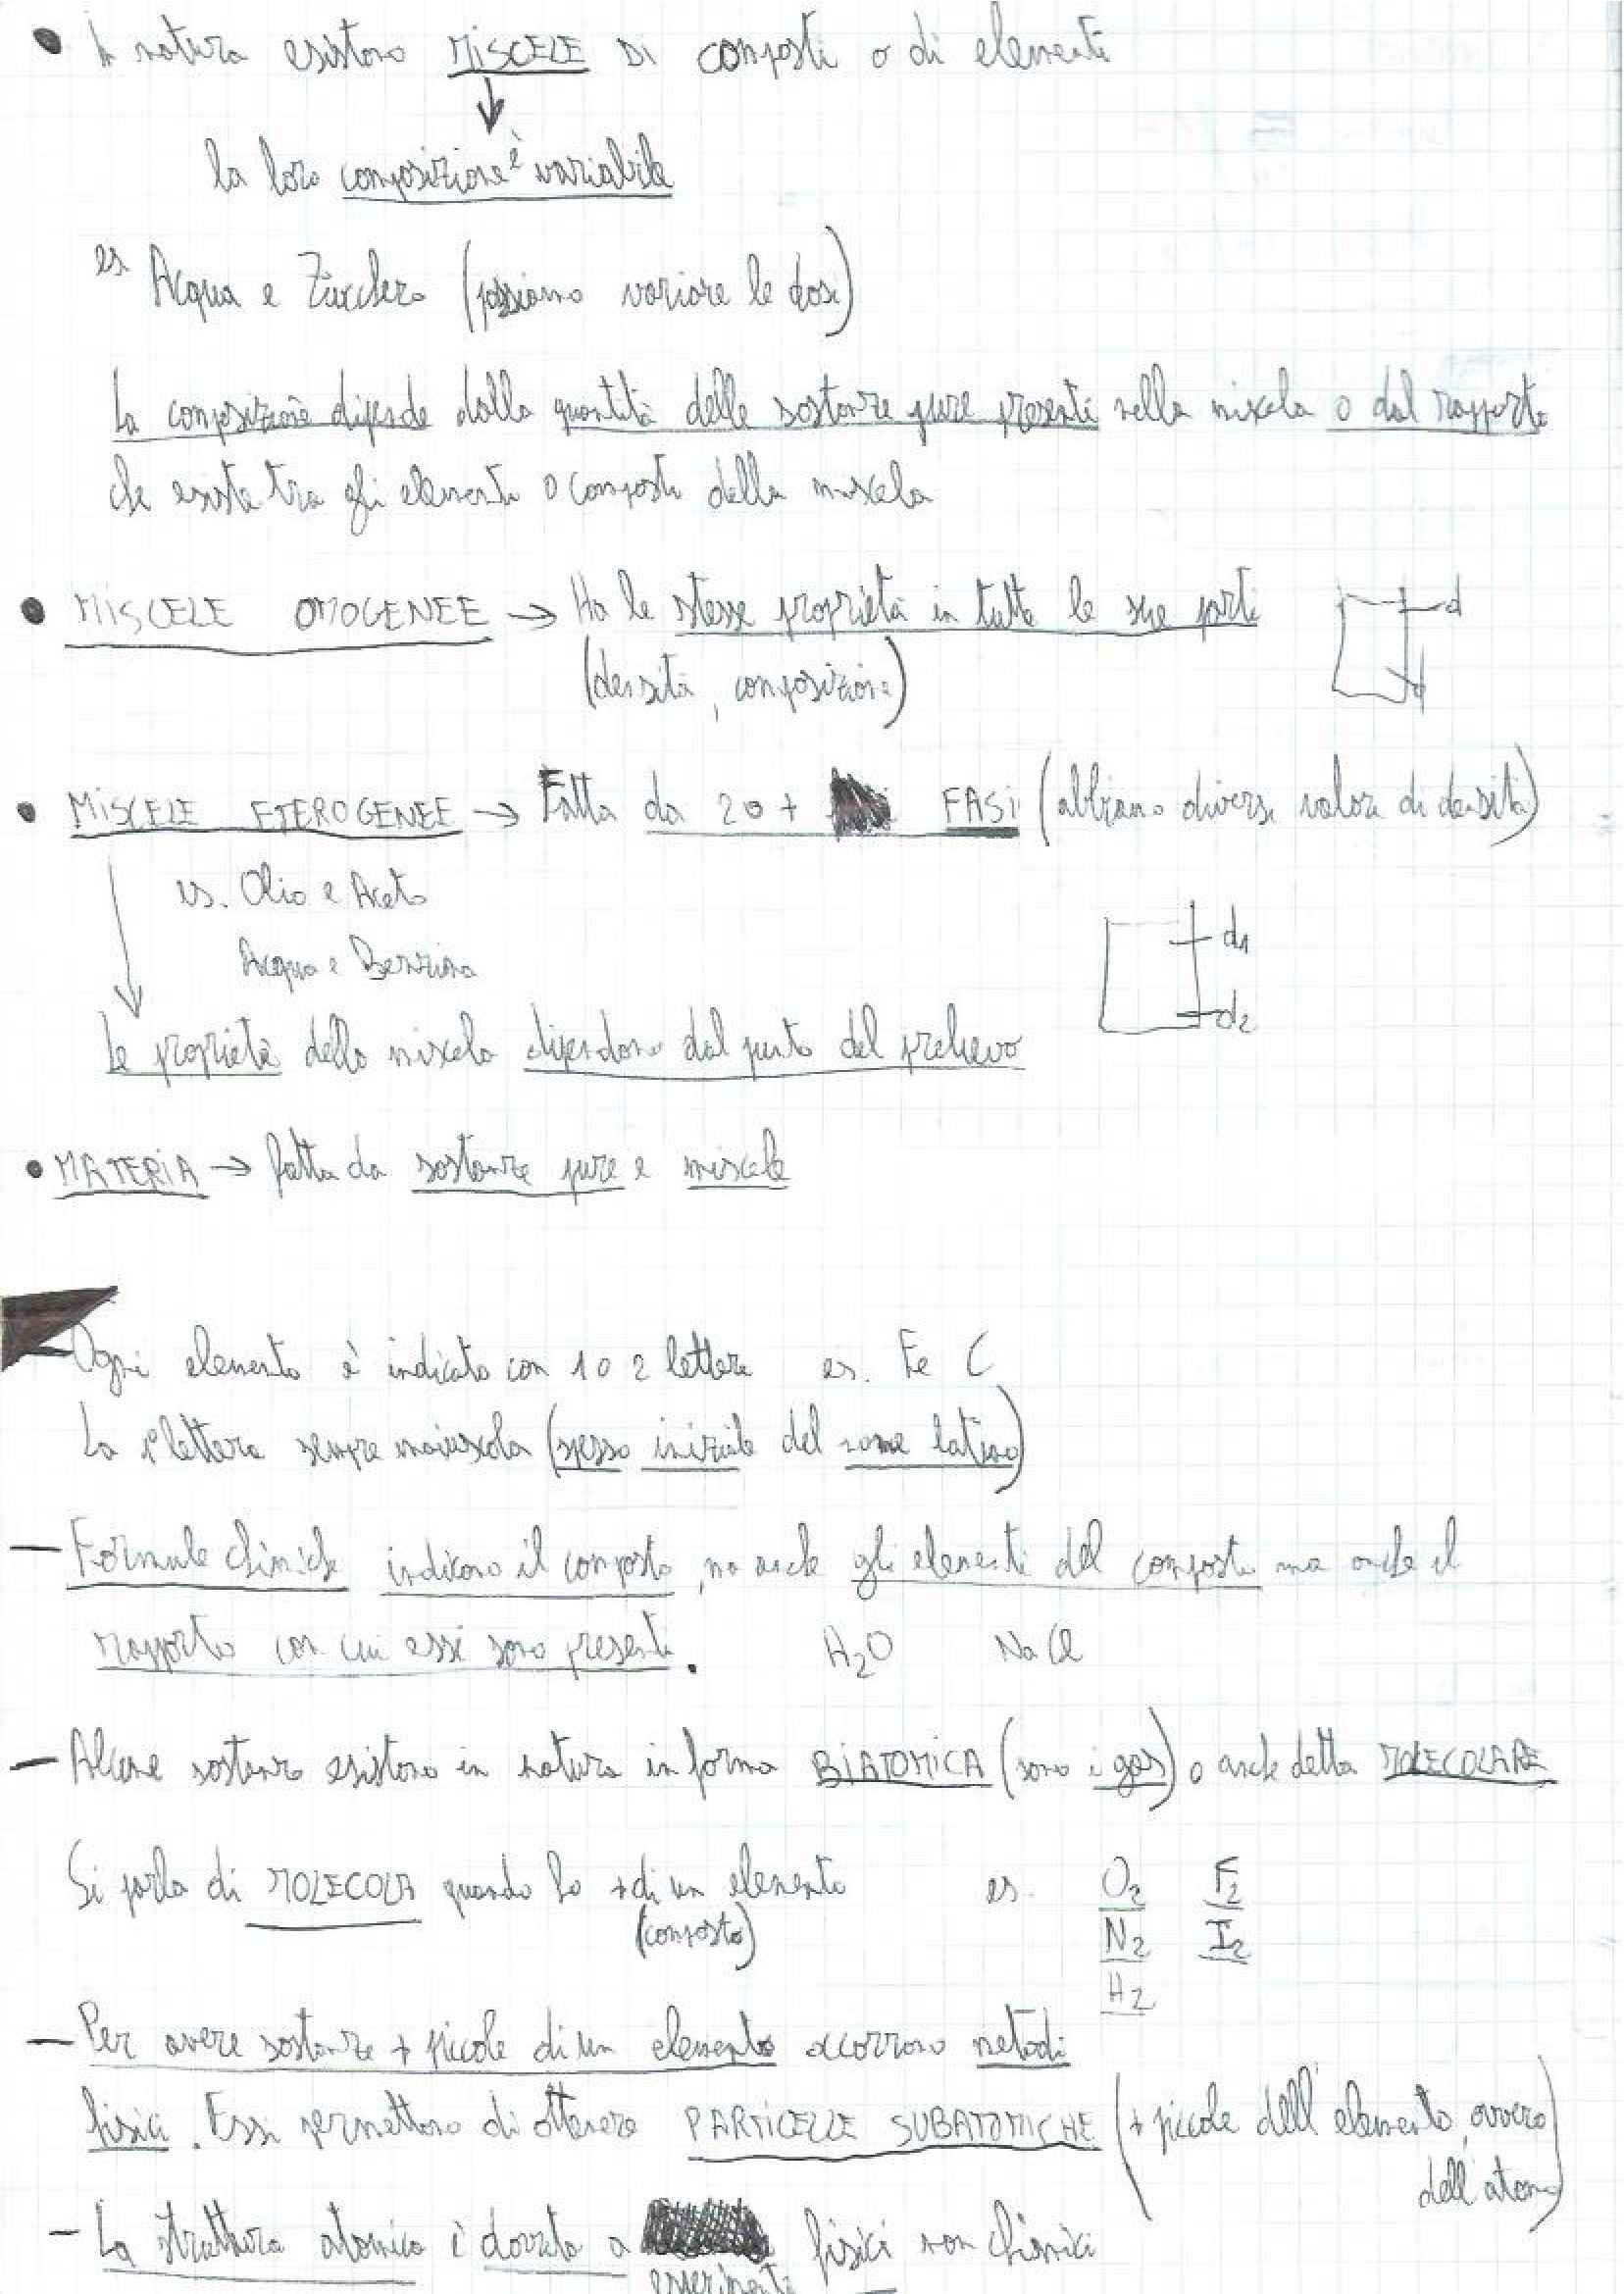 In natura esistono MISCELE DI composti o di elementi
la loro composizione è variabile
es Acqua e Zucchero (possiamo variare le dosi)
La composizione dipende dalla quantità delle sostanze pure presenti nella miscela o dal rapporto
che esiste tra gli elementi o composti della miscela
MISCELE OMOGENEE → Ha le stesse proprietà in tutte le sue parti
(densità, composizione)
d
d
MISCELE ETEROGENEE → Fatta da 2 o + FASI (abbiamo diversi valori di densità)
es. Olio e Aceto
Acqua e Benzina
d1
d2
Le proprietà della miscela dipendono dal punto del prelievo
MATERIA → fatta da sostanze pure e miscele
- Ogni elemento è indicato con 1 o 2 lettere es. Fe C
La 1° lettera sempre maiuscola (spesso iniziale del nome latino)
- Formule chimiche indicano il composto, ma anche gli elementi del composto ma anche il
rapporto con cui essi sono presenti. H2O NaCl
- Alcune sostanze esistono in natura in forma BIATOMICA (sono i gas) o anche detta MOLECOLARE
Si parla di MOLECOLA quando ho + di un elemento es. O2 F2
(composto) N2 I2
H2
- Per avere sostanze + piccole di un elemento occorrono metodi
fisici. Essi permettono di ottenere PARTICELLE SUBATOMICHE (+ piccole dell'elemento, ovvero
dell'atomo)
- La struttura atomica è dovuta a fisici non chimici
esperimenti